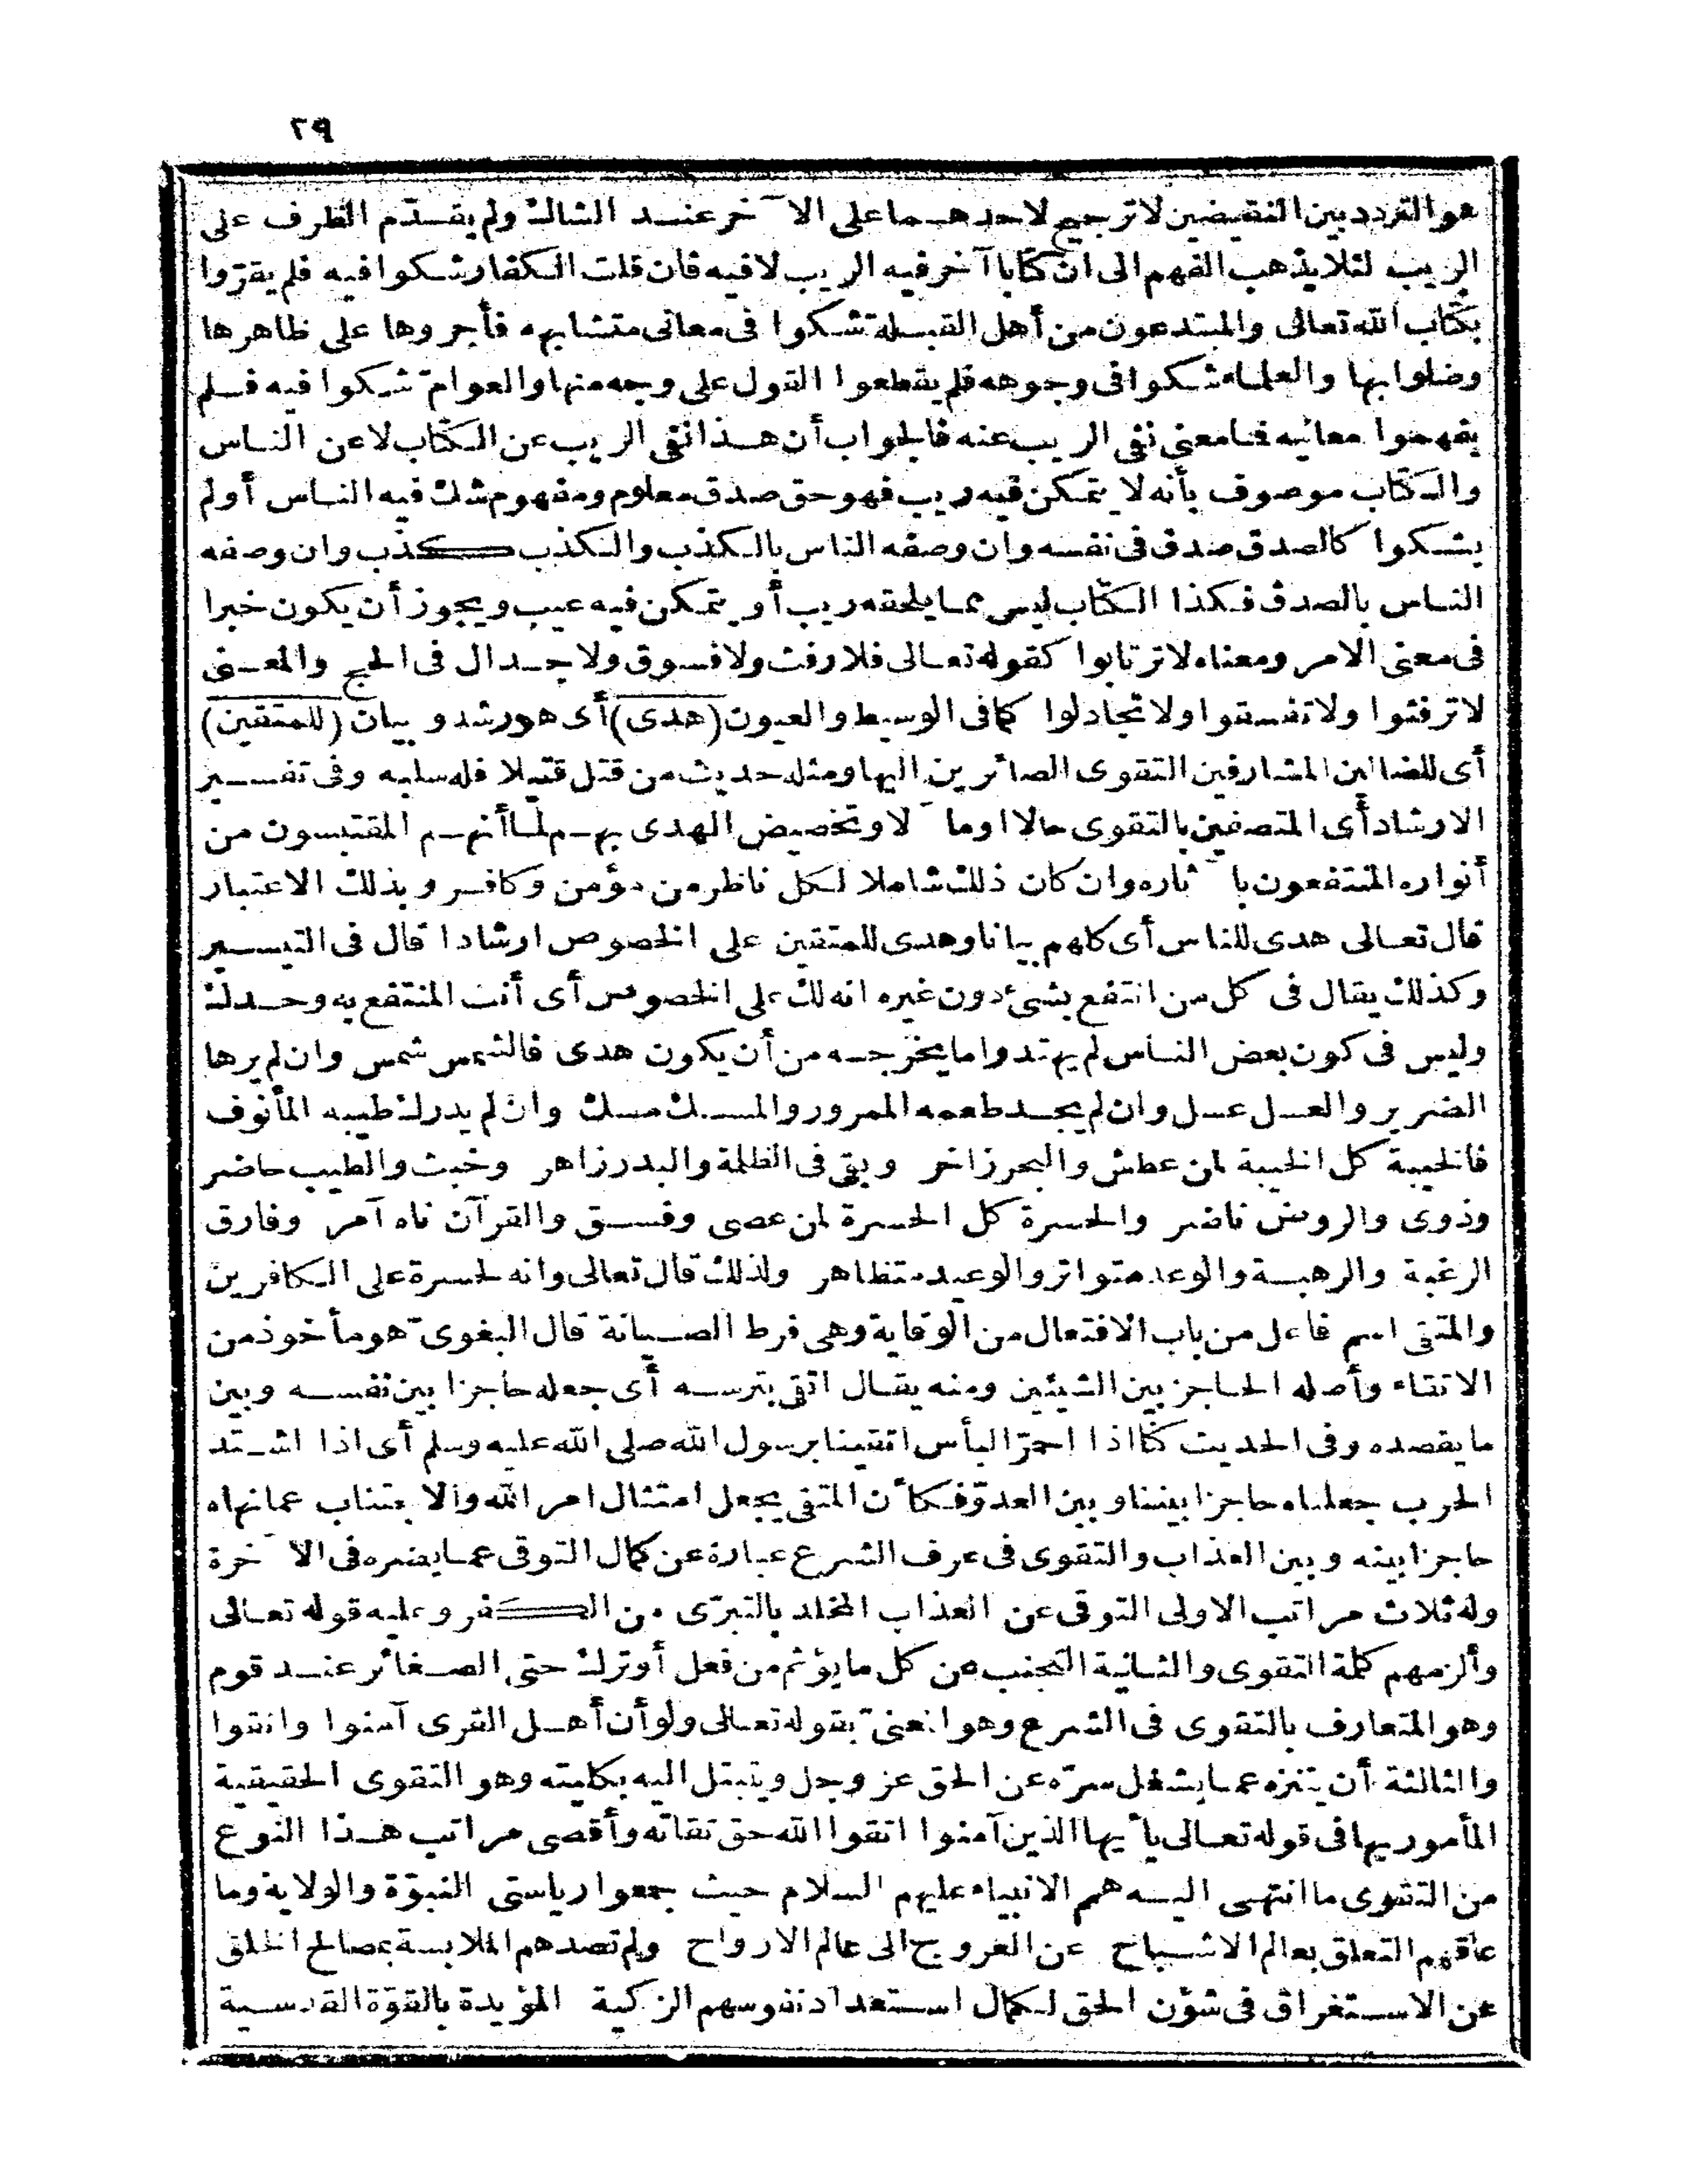 ٢٩
هو التردد بين النقيضين لا ترجيح لاحدهما على الآخر عند الشاك ولم يقدّم الظرف على
الريب لئلا يذهب الفهم الى ان كتابا آخر فيه الريب لا فيه فان قلت الكفار شكوا فيه فلم يقرّوا
بكتاب الله تعالى والمبتدعون من أهل القبلة شكوا فى معانى متشابهه فأجروها على ظاهرها
وضلوا بها والعلماء شكوا فى وجوهه فلم يقطعوا القول على وجه منها والعوامّ شكوا فيه فلم
يفهموا معانيه فما معنى نفى الريب عنه فالجواب أن هذا نفى الريب عن الكتاب لا عن الناس
والكتاب موصوف بأنه لا يتمكن فيه ريب فهو حق صدق معلوم ومفهوم شك فيه الناس أولم
يشكوا كالصدق صدق فى نفسه وان وصفه الناس بالكذب والكذب كذب وان وصفه
الناس بالصدق فكذا الكتاب ليس مما يلحقه ريب أو يتمكن فيه عيب ويجوز أن يكون خبرا
فى معنى الامر ومعناه لا ترتابوا كقوله تعالى فلا رفث ولا فسوق ولا جدال فى الحج والمعنى
لا ترفثوا ولا تفسقوا ولا تجادلوا كما فى الوسيط والعيون (هدى) أى هو رشد وبيان (للمتقين)
أى للضالين المشارفين التقوى الصائرين اليها ومثله حديث من قتل قتيلا فله سلبه وفى تفسير
الارشاد أى المتصفين بالتقوى حالا او مآلا وتخصيص الهدى بهم لما أنهم المقتبسون من
أنواره المنتفعون بآثاره وان كان ذلك شاملا لكل ناظر من مؤمن وكافر وبذلك الاعتبار
قال تعالى هدى للناس أى كلهم بيانا وهدى للمتقين على الخصوص ارشادا قال فى التيسير
وكذلك يقال فى كل من انتفع بشئ دون غيره انه لك على الخصوص أى أنت المنتفع به وحدك
وليس فى كون بعض الناس لم يهتدوا ما يخرجه من أن يكون هدى فالشمس شمس وان لم يرها
الضرير والعسل عسل وان لم يجد طعمه الممرور والمسك مسك وان لم يدرك طيبه المأنوف
فالخيبة كل الخيبة لمن عطش والبحر زاخر وبقى فى الظلمة والبدر زاهر وخبث والطيب حاضر
وذوى والروض ناضر والحسرة كل الحسرة لمن عصى وفسق والقرآن ناه آمر وفارق
الرغبة والرهبة والوعد متواتر والوعيد متظاهر ولذلك قال تعالى وانه لحسرة على الكافرين
والمتقى اسم فاعل من باب الافتعال من الوقاية وهى فرط الصيانة قال البغوىّ هو مأخوذ من
الاتقاء وأصله الحاجز بين الشيئين ومنه يقال اتقى بترسه أى جعله حاجزا بين نفسه وبين
ما يقصده وفى الحديث كنا اذا احمرّ البأس اتقينا برسول الله صلى الله عليه وسلم أى اذا اشتد
الحرب جعلناه حاجزا بيننا وبين العدوّ فكأن المتقى يجعل امتثال امر الله والاجتناب عما نهاه
حاجزا بينه وبين العذاب والتقوى فى عرف الشرع عبارة عن كمال التوقى عما يضره فى الآخرة
وله ثلاث مراتب الاولى التوقى عن العذاب المخلد بالتبرّى من الكفر وعليه قوله تعالى
وألزمهم كلمة التقوى والثانية التجنب عن كل ما يؤثم من فعل أو ترك حتى الصغائر عند قوم
وهو المتعارف بالتقوى فى الشرع وهو المعنىّ بقوله تعالى ولو أن أهل القرى آمنوا واتقوا
والثالثة أن يتنزه عما يشغل سرّه عن الحق عز وجل ويتبتل اليه بكليته وهو التقوى الحقيقية
المأمور بها فى قوله تعالى يأيها الذين آمنوا اتقوا الله حق تقاته وأقصى مراتب هذا النوع
من التقوى ما انتهى اليه همم الانبياء عليهم السلام حيث جمعوا رياستى النبوّة والولاية وما
عاقهم التعلق بعالم الاشباح عن العروج الى عالم الارواح ولم تصدهم الملابسة بمصالح الخلق
عن الاستغراق فى شؤن الحق لكمال استعداد نفوسهم الزكية المؤيدة بالقوّة القدسية